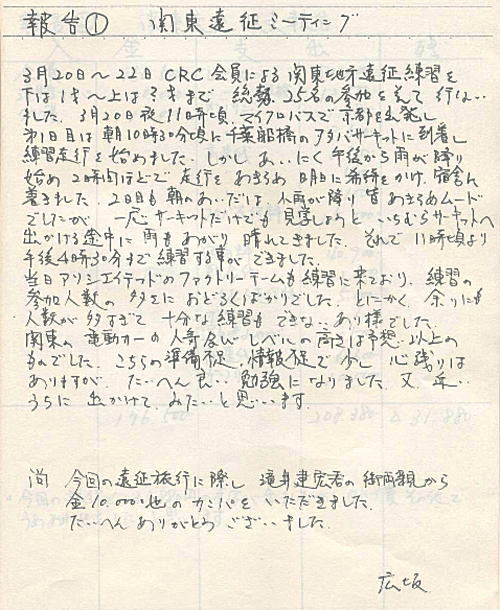 報告① 関東遠征ミーティング
3月20日〜22日 CRC 会員による 関東地方遠征練習を
下は1才〜上は?才まで 総勢25名の参加を得て 行ない
ました。3月20日夜11時頃、マイクロバスで京都を出発し
第1日目は 朝10時30分頃に千葉船橋のアタバサーキットに到着し
練習走行を始めました。しかし あいにく午後から雨が降り
始め 2時間ほどで 走行をあきらめ 明日に希望をかけ 宿舎に
着きました。2日目も 朝のあいだは、小雨が降り 皆 あきらめムード
でしたが 一応サーキットだけでも 見学しようと いちむらサーキットへ
出かける途中に 雨もあがり 晴れてきました。それで 11時頃より
午後4時30分まで練習する事ができました。
当日アソシエイテッドのファクトリーチームも練習に来ており、練習の
参加人数の 多さに おどろくばかりでした。とにかく、余りにも
人数が多すぎて 十分な練習も できない あり様でした。
関東の 電動カーの 人気及び レベルの高さは予想以上の
ものでした。こちらの準備不足、情報不足で少し 心残りは
ありますが、たいへん良い 勉強になりました。又、近い
うちに 出かけて みたいと思います。
尚 今回の遠征旅行に際し 滝井建宏君の御両親から
金10,000也のカンパを いただきました。
たいへん ありがとう ございました。
広坂